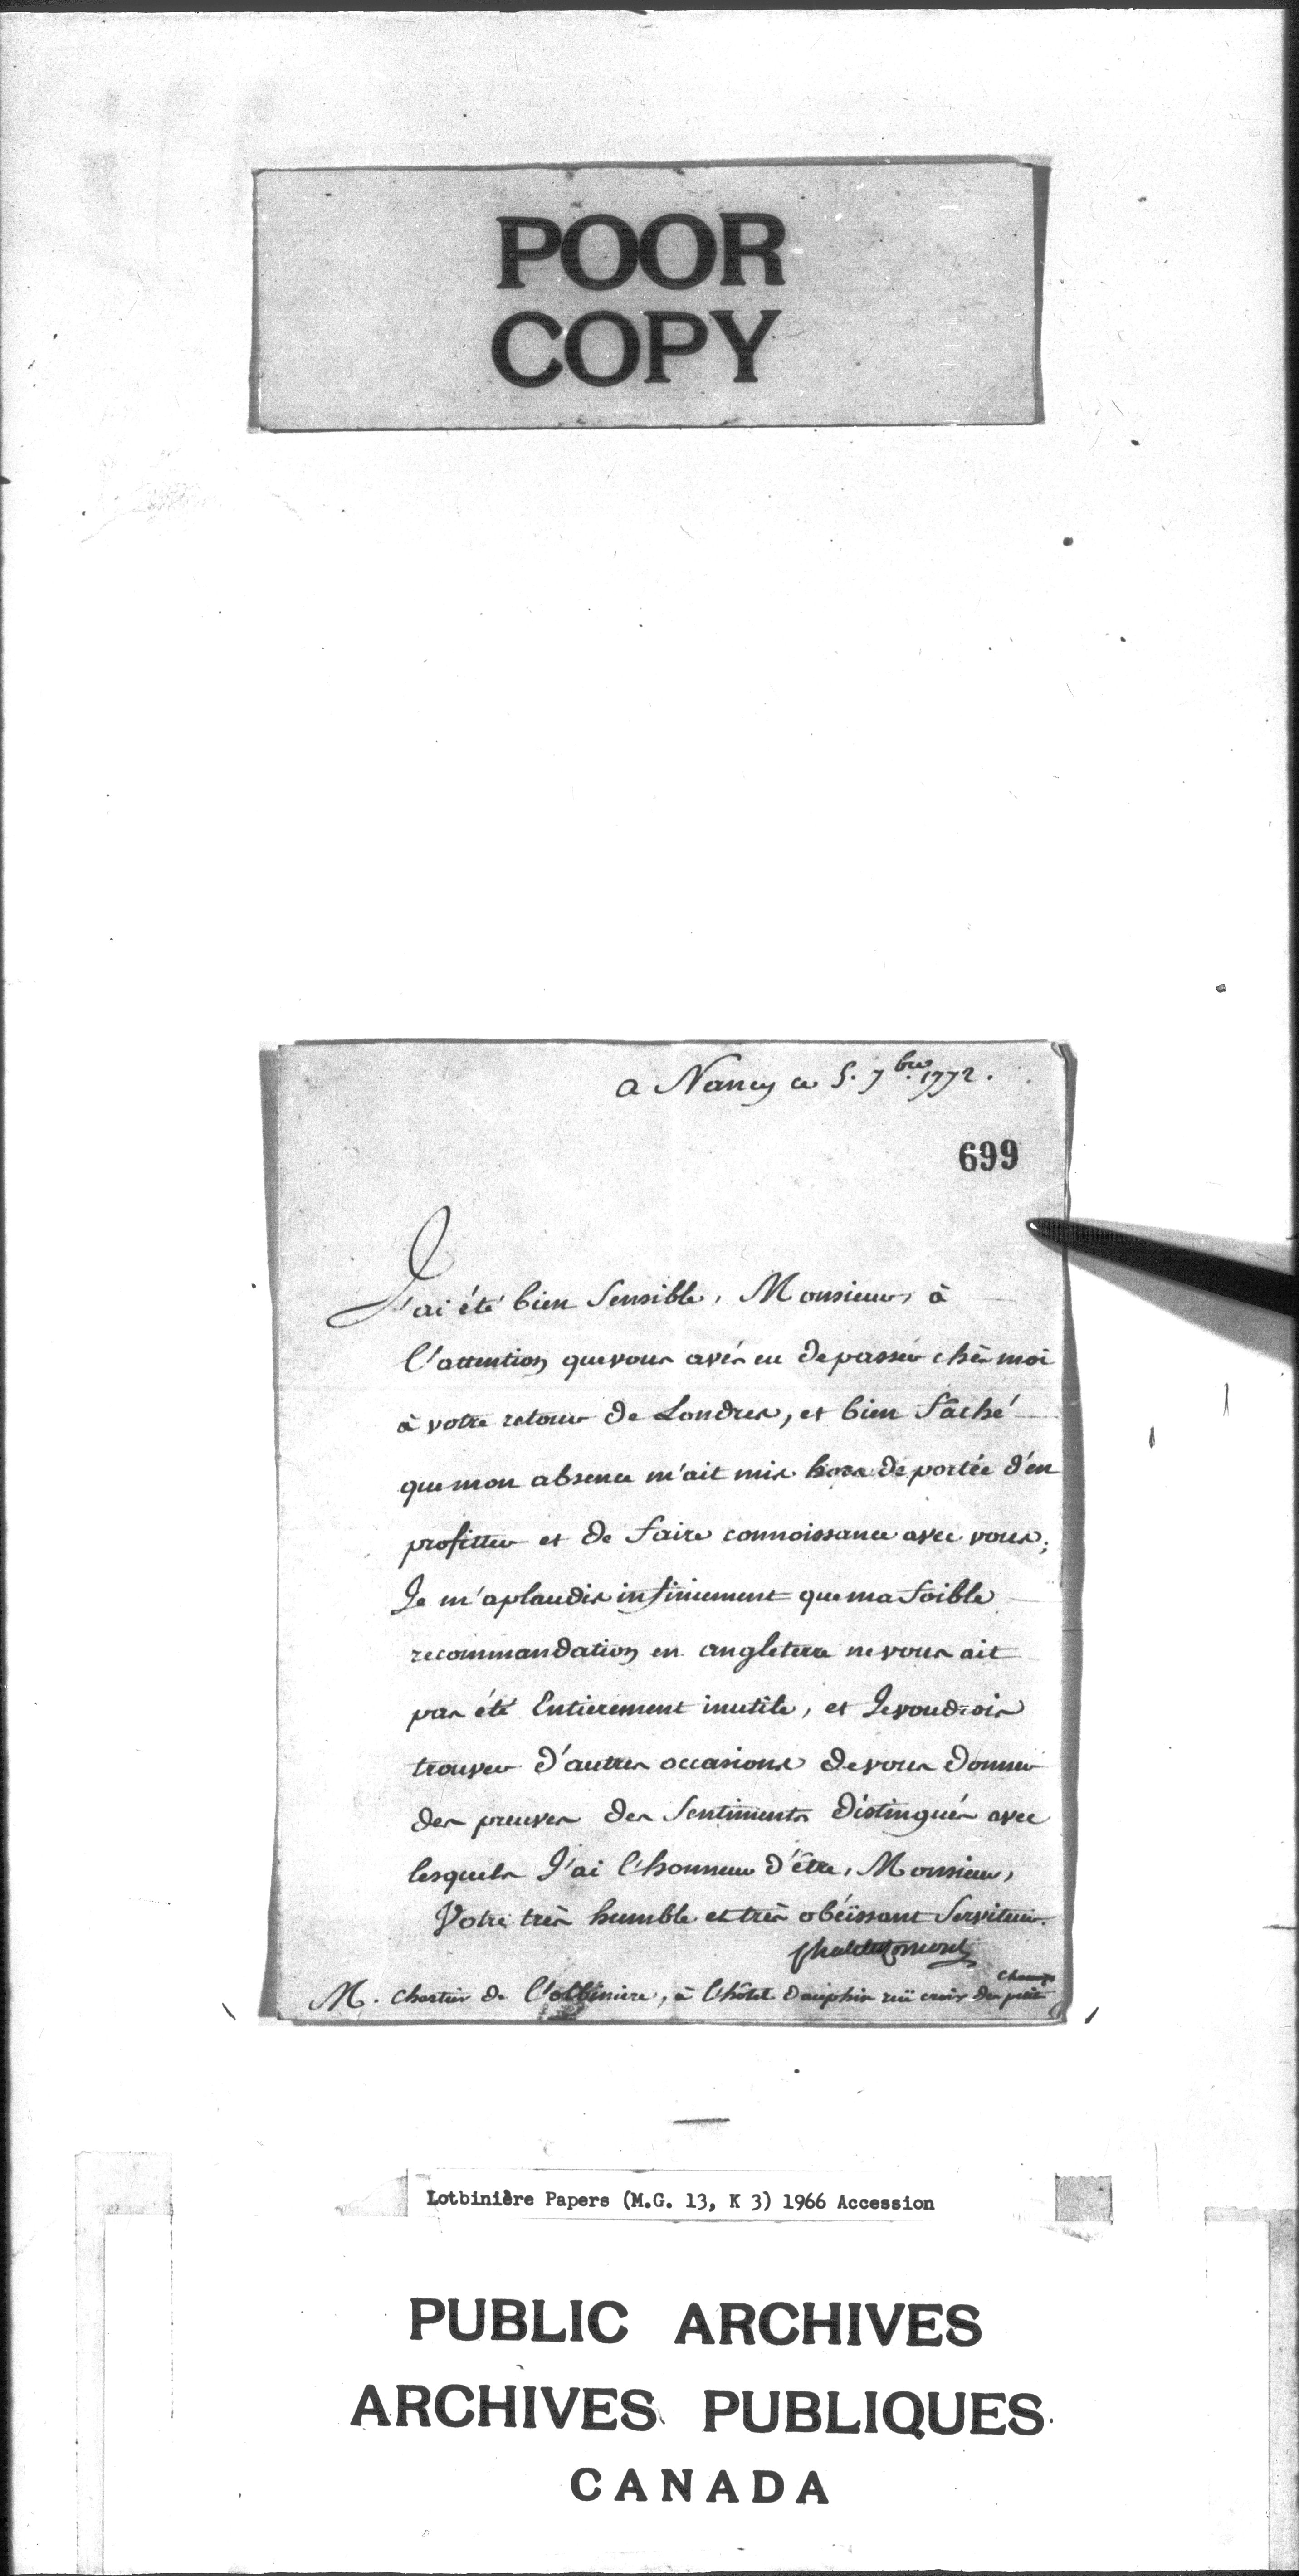 POOR
COPY
a Nancy ce 5. 7bre 1772.
699
J'ai été bien Sensible, Monsieur, à
l'attention que vous avés eu de passer chès moi
à votre retour de Londres, et bien fâché
que mon absence m'ait mis hors de portée d'en
profitter et de faire connoissance avec vous;
Je m'aplaudis infiniement que ma foible
recommandation en angleterre ne vous ait
pas été Entierement inutile, et Je voudrois
trouver d'autres occasions de vous donner
des preuves des Sentiments distingués avec
lesquels J'ai l'honneur d'être, Monsieur,
Votre très humble et très obéissant Serviteur.
M. chartier de l'otbiniere, à l'hôtel dauphin ruë croix des petit
champs
Lotbinière Papers (M.G. 13, K 3) 1966 Accession
PUBLIC ARCHIVES
ARCHIVES PUBLIQUES
CANADA